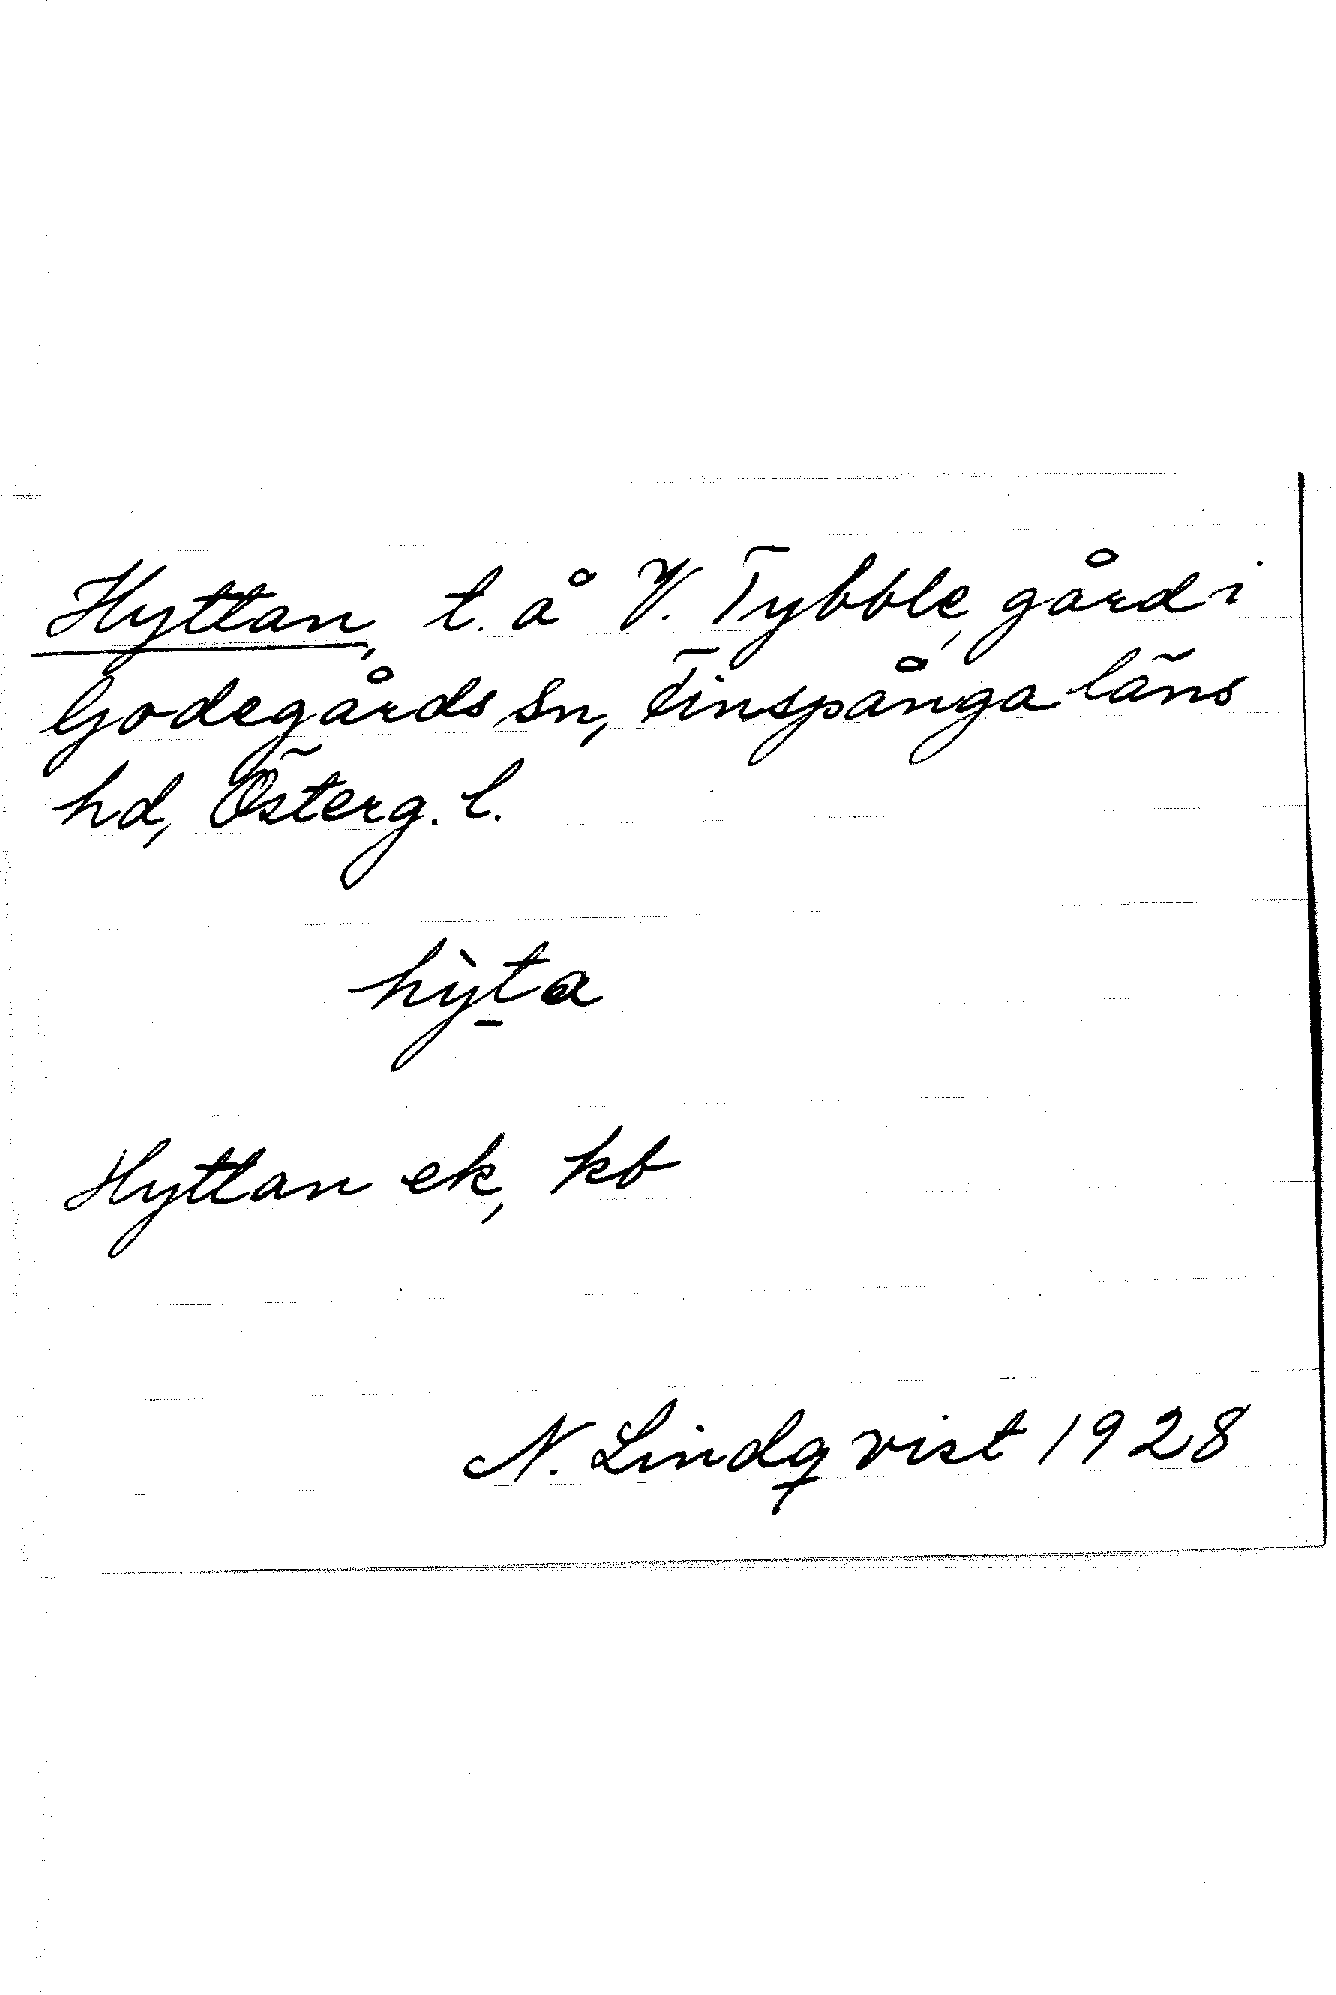 Hyttan, t. å V. Tybble, gård i
Godegårds sn, Finspånga läns
hd, Österg. l.
hỳ̠ta
Hyttan ek, kb
N. Lindqvist 1928